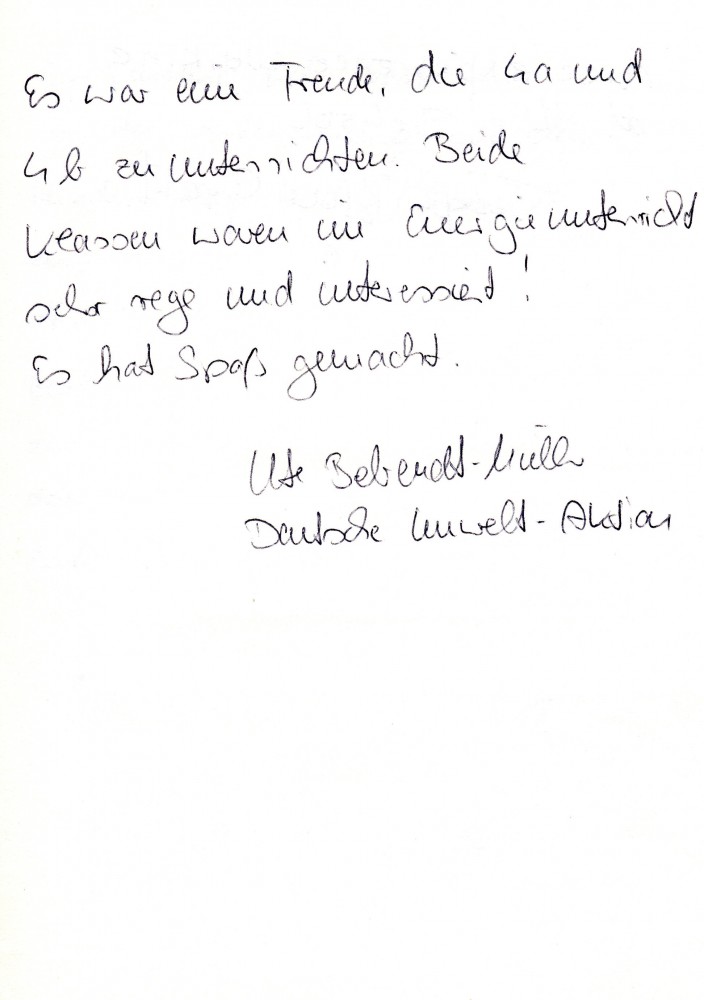 Es war eine Freude, die 4a und
4b zu unterrichten. Beide
Klassen waren im Energieunterricht
sehr rege und interessiert!
Es hat Spaß gemacht.
Ute Behrendt-Müller
Deutsche Umwelt-Aktion